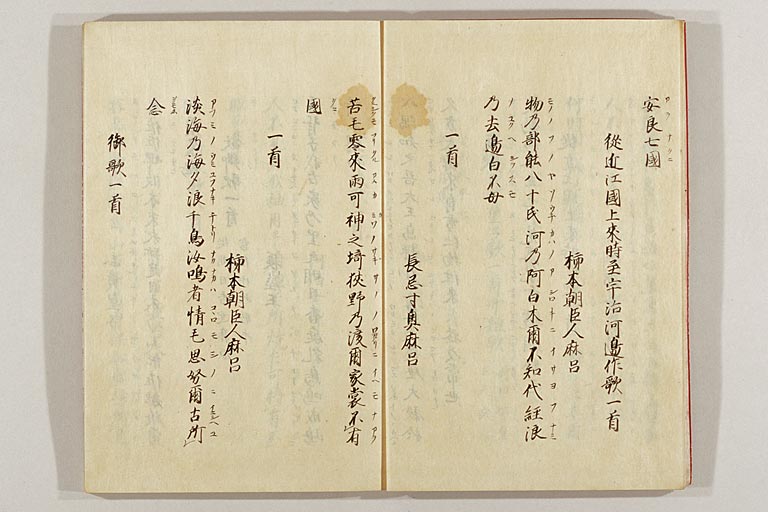 安良七國
從近江國上來時至宇治河邊作歌一首
柿本朝臣人麻呂
物乃部能八十氏河乃阿白木爾不知代經浪
乃去邉白不母
一首
長忌寸奥麻呂
苦毛零來雨可神之埼狹野乃渡爾家裳不有
國
一首
柿本朝臣人麻呂
淡海乃海夕浪千鳥汝鳴者情毛思努爾古所
念
御歌一首